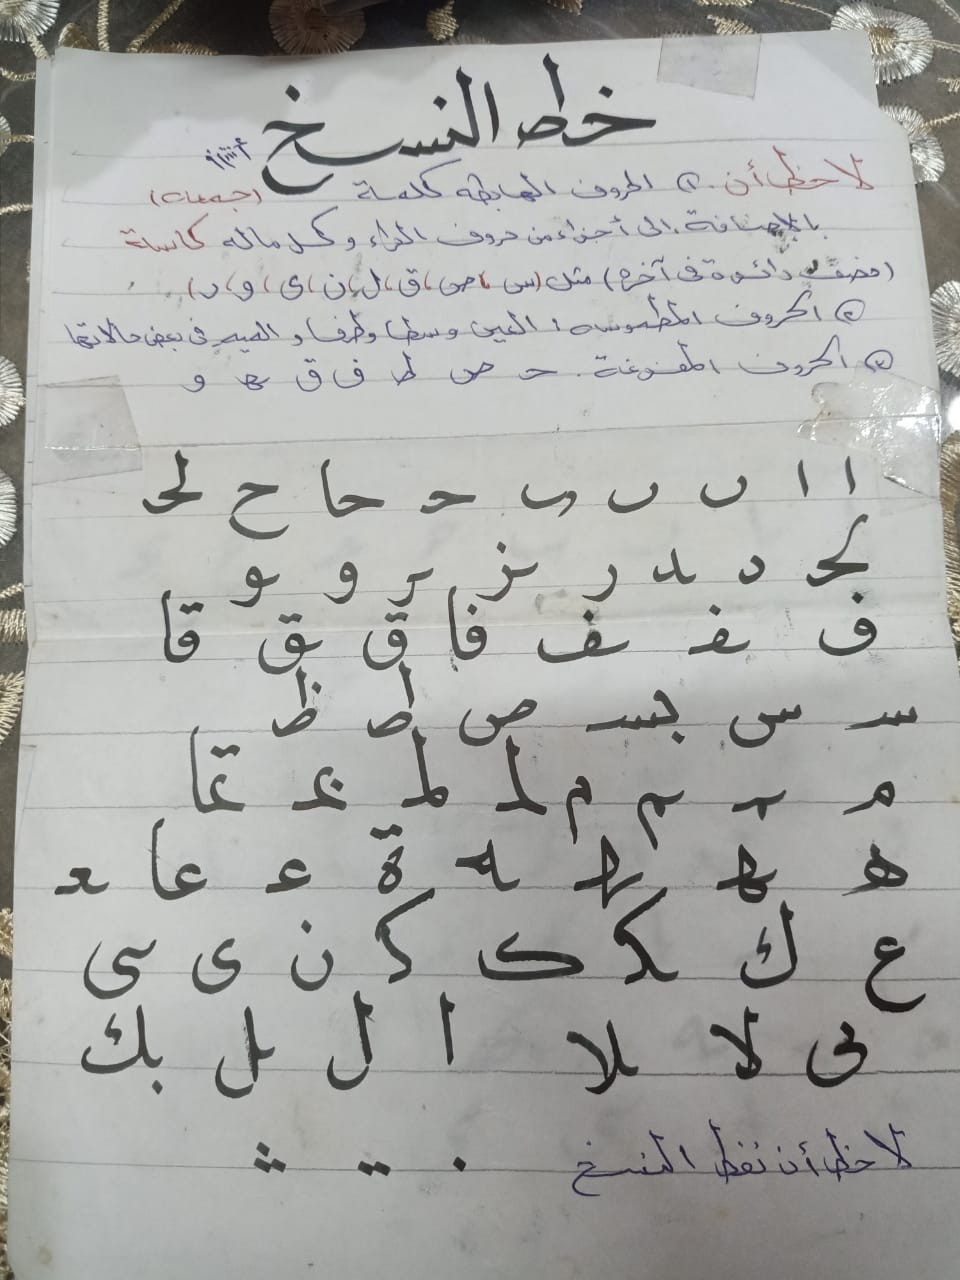 خط النسخ
لاحظ أن. ① الحروف الهابطة كلمة (جميعه)
بالإضافة إلى أجزاء من حروف الراء وكل ماله كاسة
(نصف دائرة في آخره) مثل (س، ص، ق، ل، ن، ى، و، ر)
② الحروف المطموسة: العين وسطا وطرفا و الميم في بعض حالاتها
③ الحروف المفرغة. حـ صـ ط ف ق ـهـ و
ا ا ں ں ںى حـ حا ح لحـ
كحـ د ـد ر ـز ـر و ـو
ف ـفـ ـف فا ق ـق قا
سـ س بسـ ص ط ظ
م ـمـ ـم م لمـ لمـ غـ غا
هـ ـهـ ـهـ ـه ة عـ عا ـعـ
ع ك ـكـ ک کـ ن ى سى
نى لا ـلا ا ل ـل بك
لاحظ أن نقط النسخ